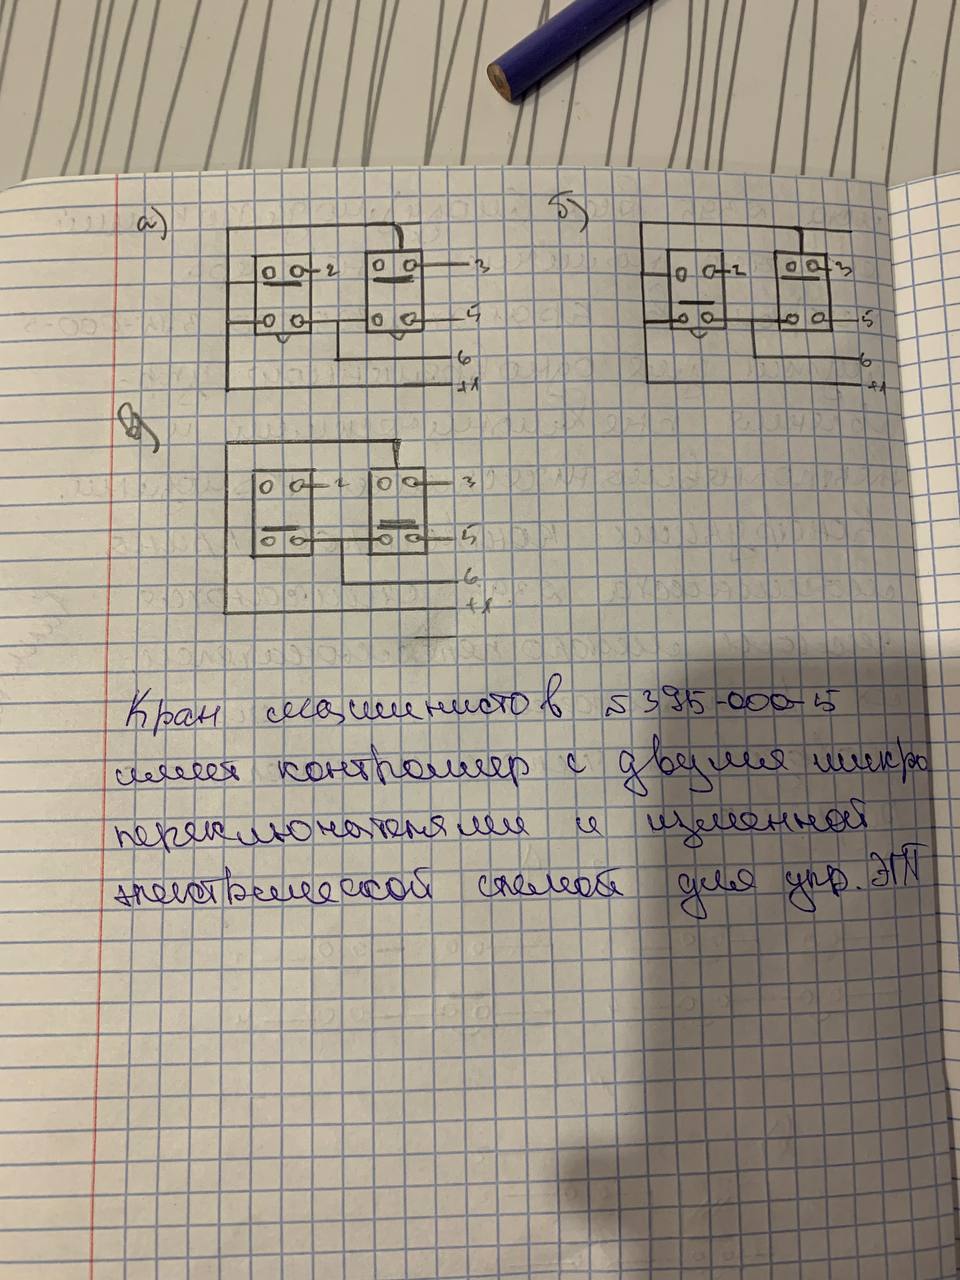 а) б)
2 3 2 3
5 5
6 6
+1 +1
в)
2 3
5
6
+1
Кран машинистов 5 395-000-5
имеет контроллер с двумя микро
переключателями и изменной
электрической схемой для упр. ЭПТ